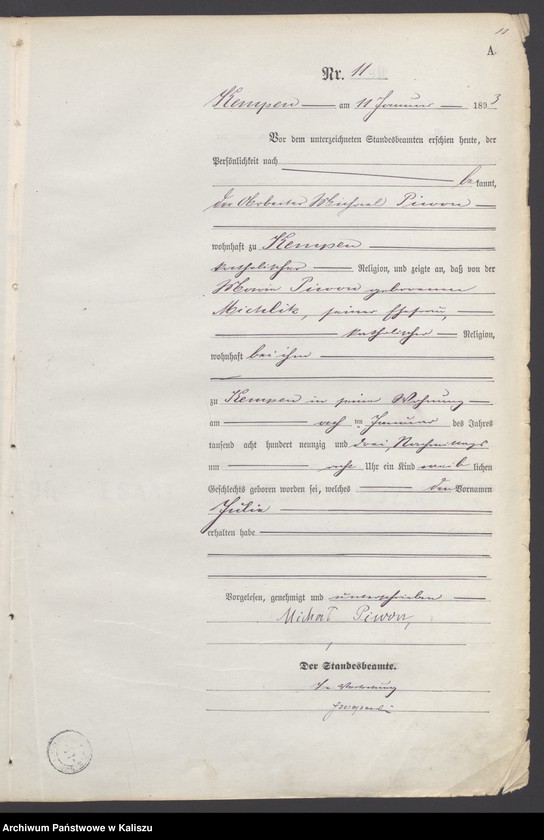 11
A.
Nr. 11
Kempen am 11 Januar 1893
Vor dem unterzeichneten Standesbeamten erschien heute, der
Persönlichkeit nach
bekannt,
der Arbeiter Michael Piwon
wohnhaft zu Kempen
katholischer Religion, und zeigte an, daß von der
Maria Piwon geborenen
Michlik, seiner Ehefrau,
katholischer Religion,
wohnhaft bei ihm
zu Kempen in seiner Wohnung
am acht ten Januar des Jahres
tausend acht hundert neunzig und drei, Nachmittags
um acht Uhr ein Kind weiblichen
Geschlechts geboren worden sei, welches den Vornamen
Julie
erhalten habe
Vorgelesen, genehmigt und unterschrieben
Michał Piwon,
Der Standesbeamte.
In Vertretung
Archiwum Państwowe w Kaliszu